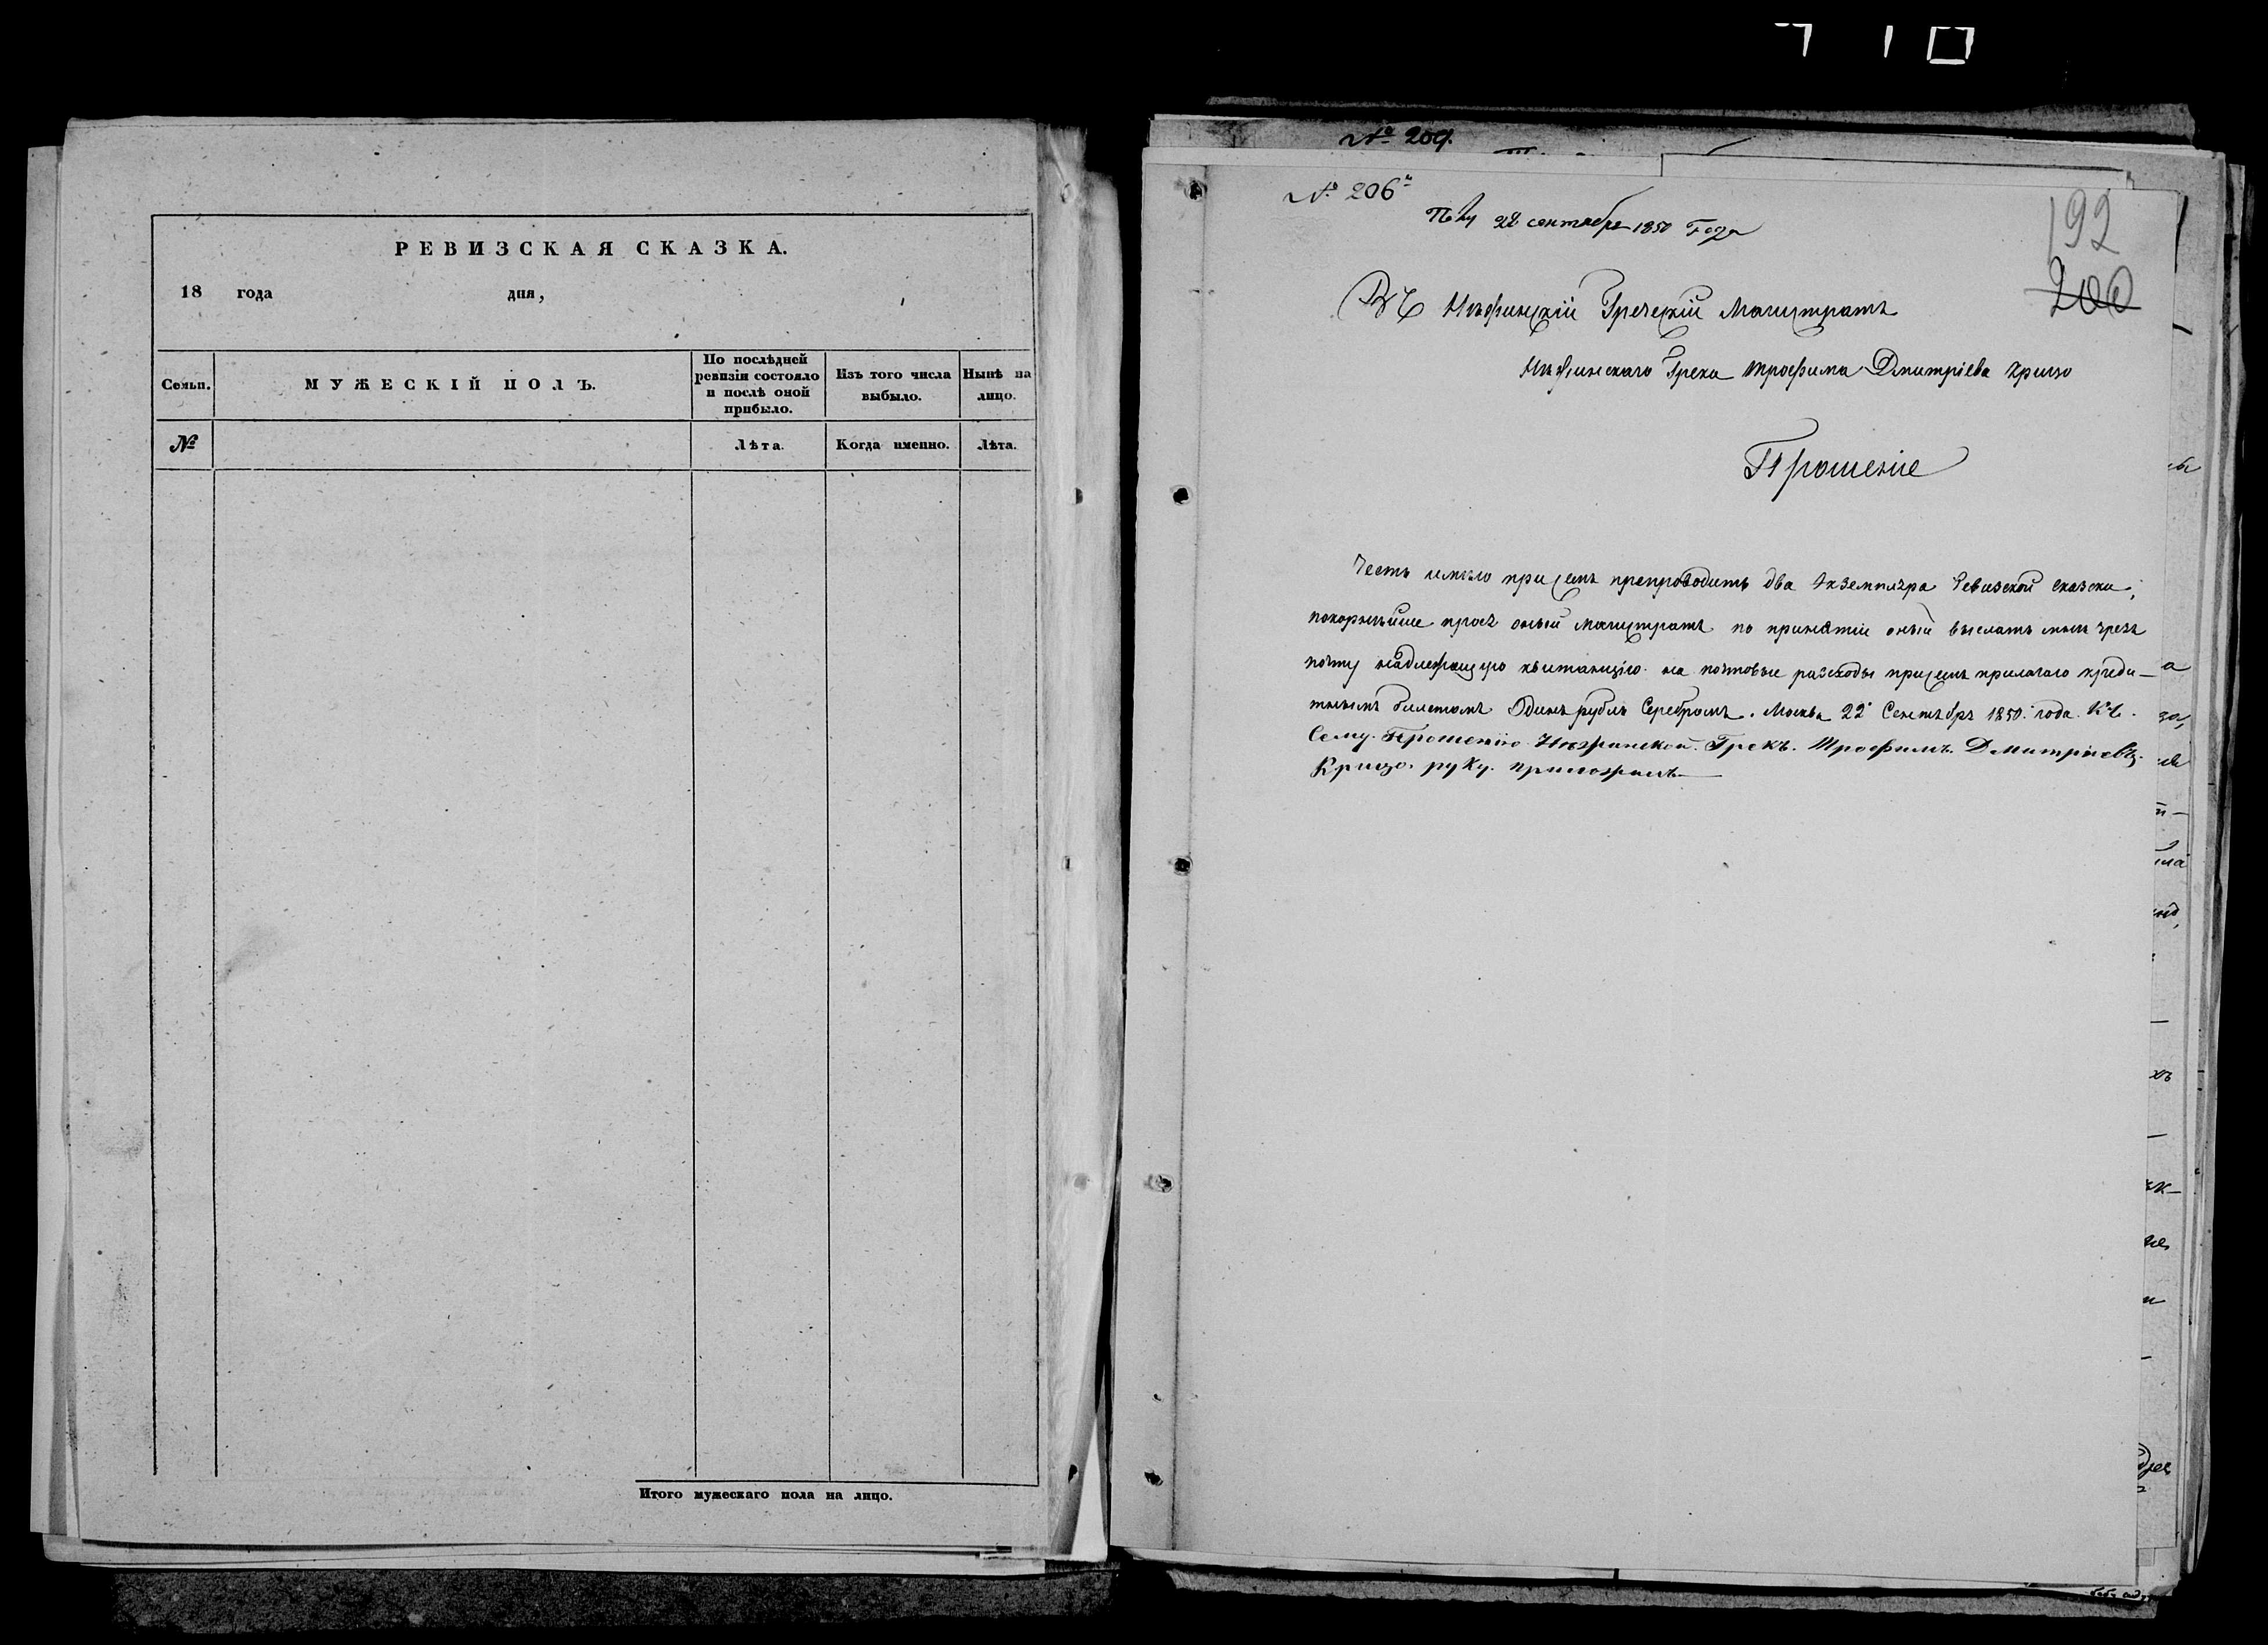 РЕВИЗСКАЯ СКАЗКА.
18 года дня,
Семьи.
МУЖЕСКІЙ ПОЛЪ.
По послѣдней
ревизіи состояло
и послѣ оной
прибыло.
Изъ того числа
выбыло.
Нынѣ на
лицо.
№
Лѣта.
Когда именно.
Лѣта.
Итого мужескаго пола на лицо.
№ 209.
№ 206
28 сентября 1850 Года
192
200
Въ Нѣжинскій Греческій Магистратъ
Нѣжинскаго Грека Трофима Дмитріева Крицо
Прошеніе
Честь имѣю при семъ препроводить два Экземпляра Ревизской сказки,
покорнѣйше прося оный магистратъ по принятіи оныя выслать мнѣ чрезъ
почту надлежащую квитанцію. на почтовые расходы при семъ прилагаю креди-
тнымъ билетомъ Одинъ рубль Серебромъ. Москва 22 Сентября 1850. года. Къ.
Сему. Прошенію. Нѣжинской. Грекъ. Трофимъ. Дмитріевъ.
Крицо. руку. приложилъ